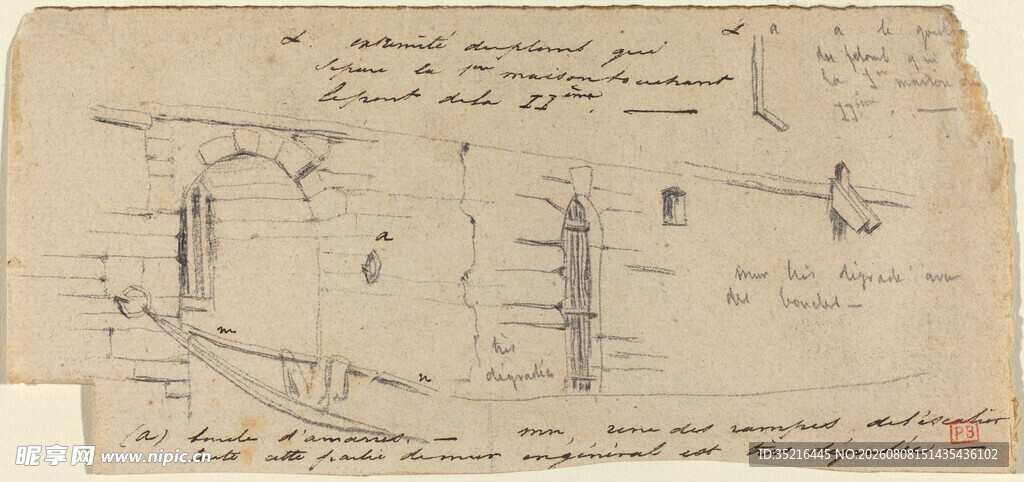 L. extrémité du plomb qui
sépare la 1ère maison touchant
le pont de la IIème.
L a
a le
du plomb qui
la 1ère maison
IIème.
a
m
n
mur très dégradé avec
des boucles —
très
dégradée
(a) boucle d'amarres. —
toute cette partie de mur en général est
mn, une des rampes de l'escalier
P3
昵享网 www.nipic.cn
ID:35216445 NO:20260808151435436102